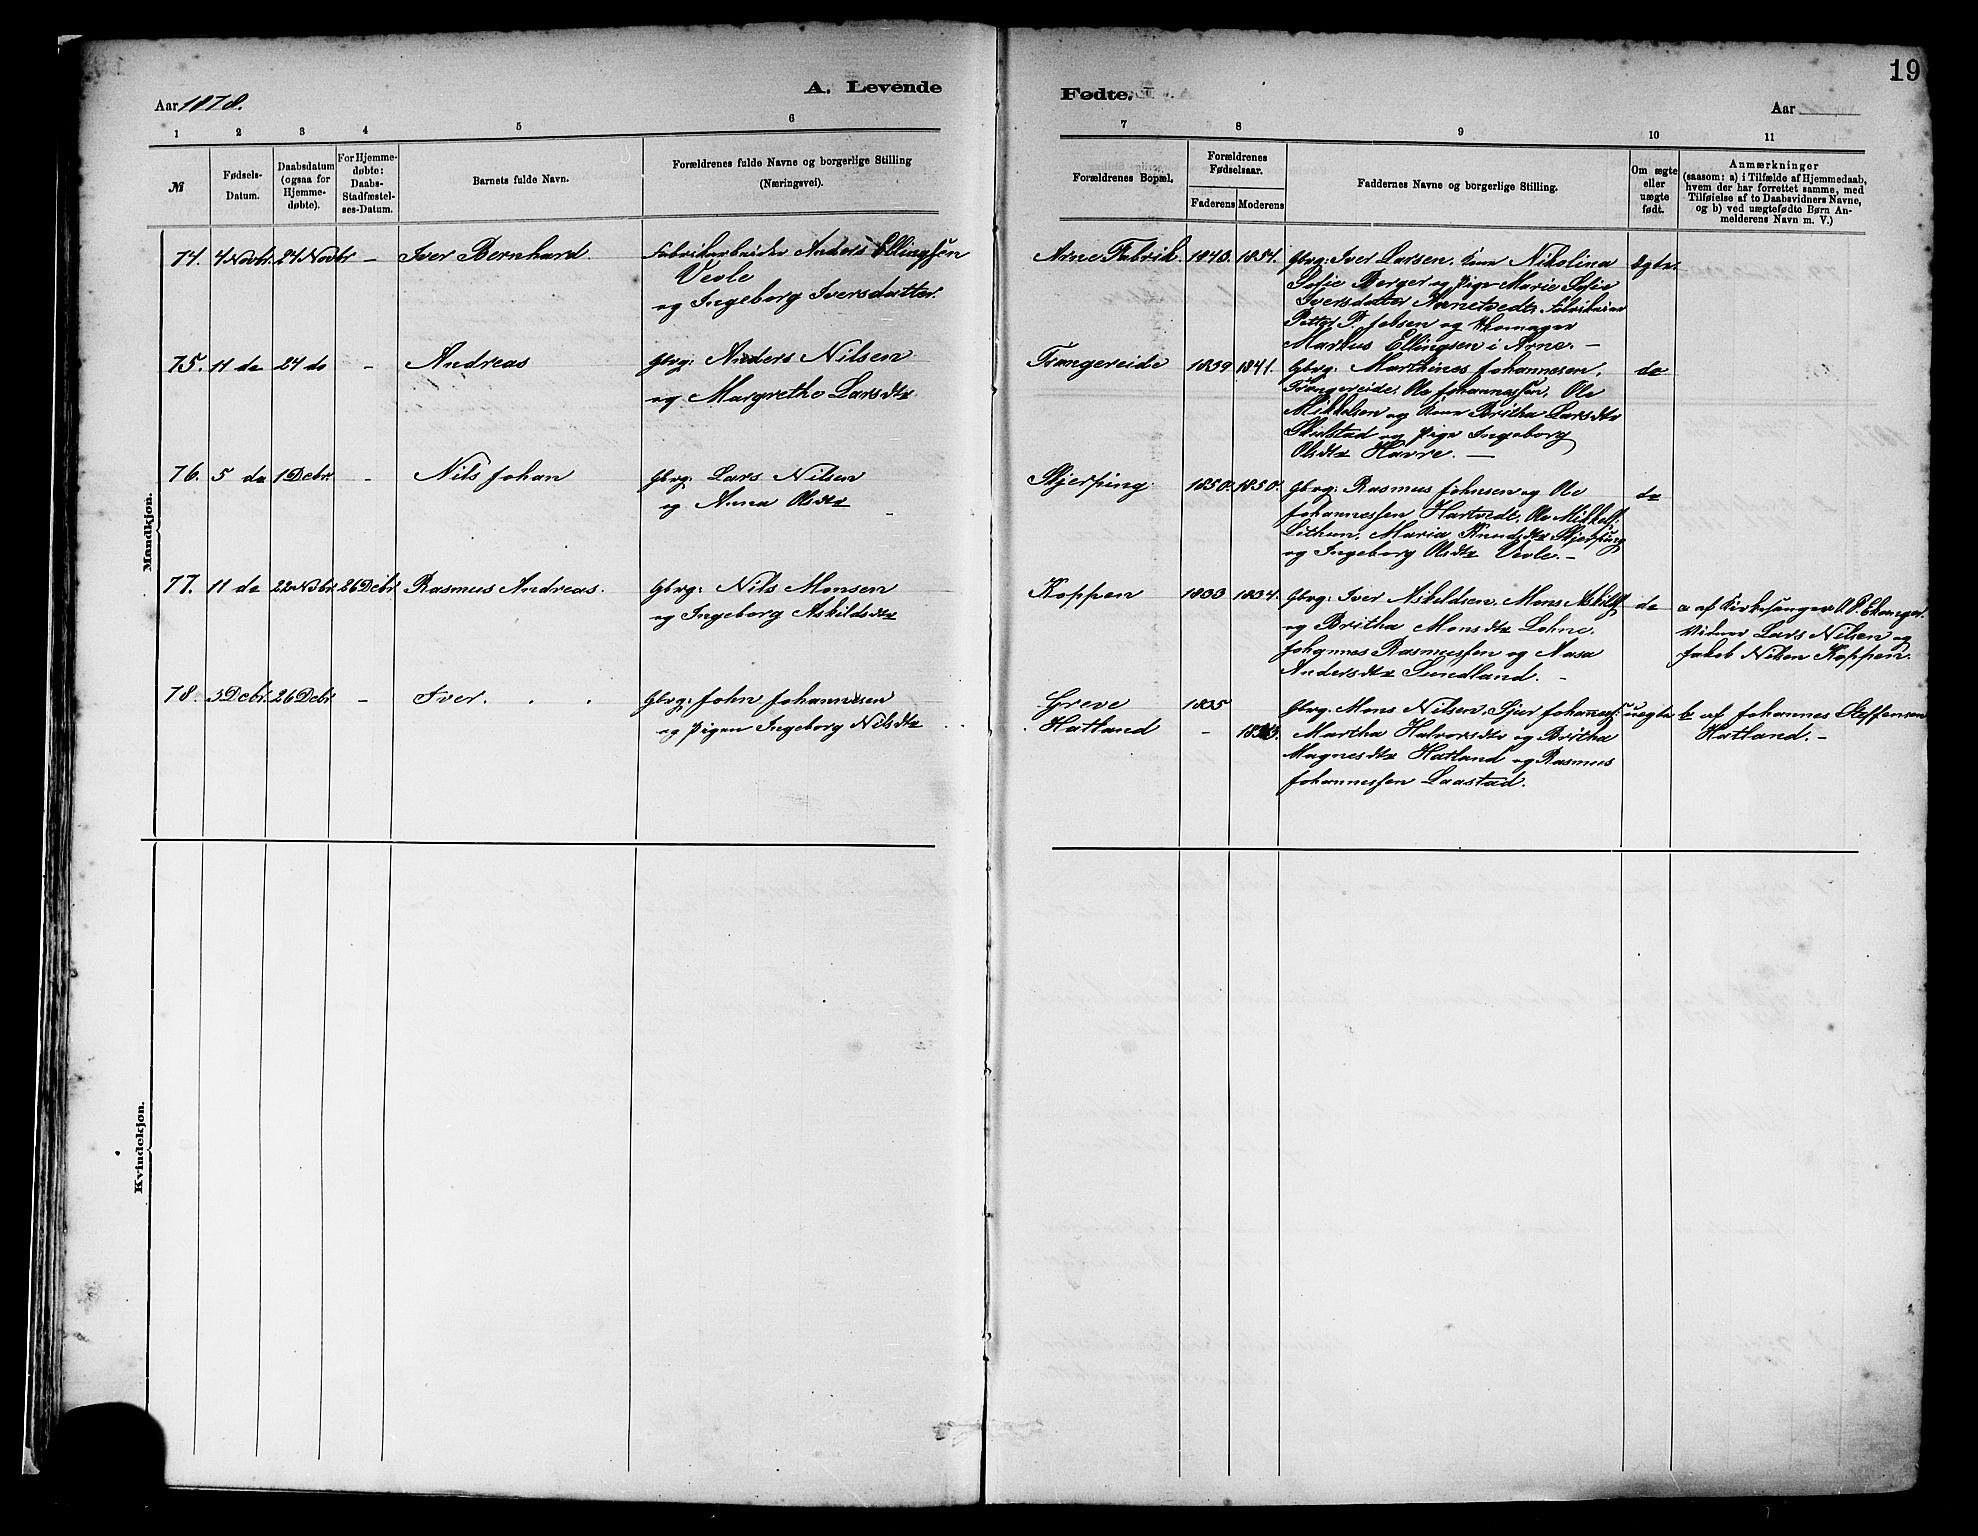 19
Aar 1878.
A. Levende
Fødte.
Aar
1 2 3 4 5 6
7 8 9 10 11
№
Fødsels-
Datum.
Daabsdatum
(ogsaa for
Hjemme-
døbte).
For Hjemme-
døbte:
Daabs-
Stadfæstel-
ses-Datum.
Barnets fulde Navn.
Forældrenes fulde Navne og borgerlige Stilling
(Næringsvei).
Forældrenes Bopæl.
Forældrenes
Fødselsaar.
Faderens Moderens
Faddernes Navne og borgerlige Stilling.
Om ægte
eller
uægte
født.
Anmærkninger
(saasom: a) i Tilfælde af Hjemmedaab,
hvem der har forrettet samme, med
Tilføielse af to Daabsvidners Navne,
og b) ved uægtefødte Børn An-
melderens Navn m. V.)
Mandkjøn.
74. 4 Novbr. 24 Novbr - Iver Bernhard. Fabrikarbeider Anders Ellingsen
Vevle
og Ingeborg Iversdatter.
Arne Fabrik. 1848. 1854. Gbrg: Iver Larsen, Kone Nikolina
Sofie Berger og Pige Marie Sofie
Iversdatter Arnetvedt, Fabrikeier
Petter P. Jebsen og
Markus Ellingsen i Arne. -
Ægte.
75. 11 do 24 do - Andreas Gbrg: Anders Nilsen
og Margrethe Larsdtr
Trængereide 1839 1841. Gbrg: Marthines Johannesen,
Trængereide, Ole Johannessen, Ole
Mikkelsen og Kone Britha Larsdtr
og Pige Ingeborg
Olsdtr Havre. -
do
76. 5 do 1 Debr. - Nils Johan Gbrg: Lars Nilsen
og Anna Olsdtr
Skjerping. 1850. 1850. Gbrg: Rasmus Johnsen og Ole
Johannessen Hartvedt, Ole Mikkels:
Lithun, Maria Knudsdtr Skjerping
og Ingeborg Olsdtr Vevle. -
do
77. 11 do 22 Novbr 26 Debr Rasmus Andreas. Gbrg: Nils Monsen
og Ingeborg Askildsdtr
Koppen 1833 1834. Gbrg: Iver Askildsen, Mons Askilds:
og Britha Monsdtr Lohne.
Johannes Rasmussen og Aasa
Andersdtr Sundland. -
do a af Kirkesanger O. P. Ekanger.
Vidner Lars Nilsen og
Jakob Nilsen Koppen.
78. 5 Debr. 26 Debr - Iver. Gbrg: John Johannesen
og Pigen Ingeborg Nilsdtr
Greve 1835
Hatland -
Gbrg: Mons Nilsen, Sjur Johannes:
Martha Halvorsdtr og Britha
Magnesdtr Hatland og Rasmus
Johannessen Laastad.
uægte b af Johannes Steffensen
Hatland. -
Kvindekjøn.